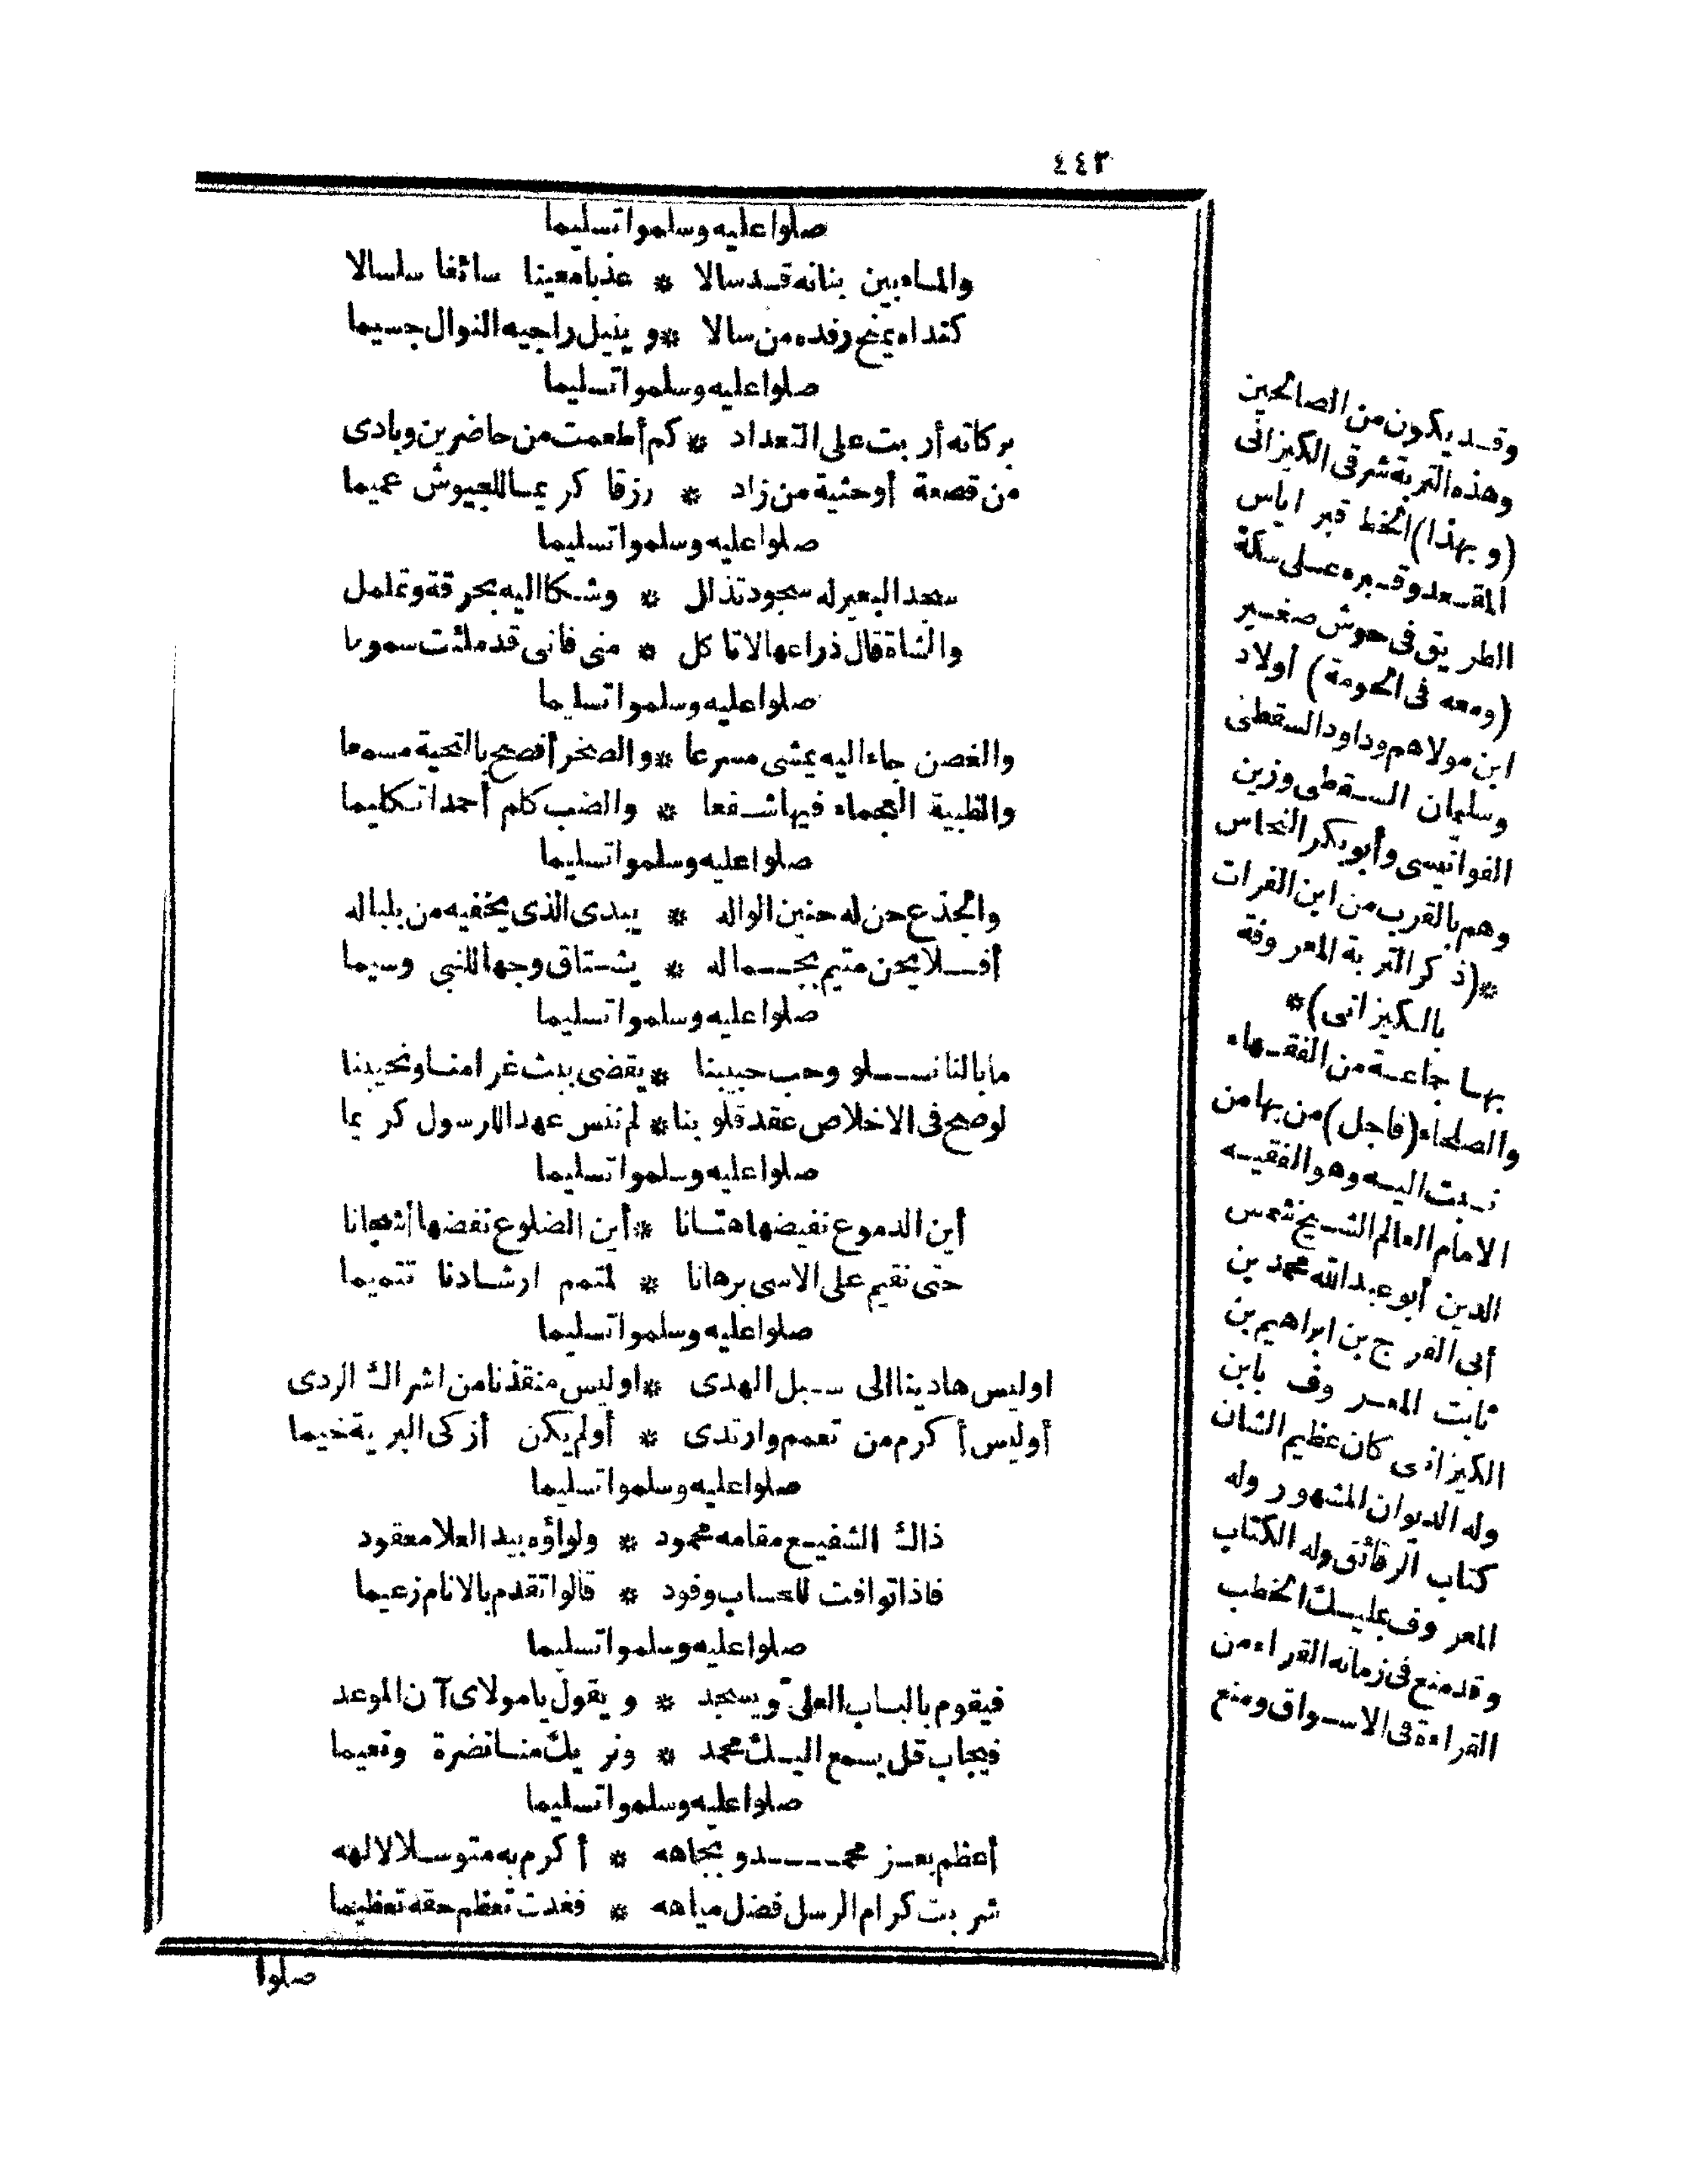 ٤٤٣
صلوا عليه وسلموا تسليما
والماء بين بنانه قد سالا * عذبا معينا سائغا سلسالا
كنداه يمنح رفده من سالا * و ينيل راجيه النوال جسيما
صلوا عليه وسلموا تسليما
بركاته أربت على التعداد * كم أطعمت من حاضرين وبادى
من قصعة أو حثية من زاد * رزقا كريما للجيوش عميما
صلوا عليه وسلموا تسليما
سجد البعير له سجود تذلل * وشكا اليه بحرقة وتململ
والشاة قال ذراعها لا تاكل * منى فانى قد ملئت سموما
صلوا عليه وسلموا تسليما
والغصن جاء اليه يمشى مسرعا * والصخر أفصح بالتحية مسمعا
والظبية العجماء فيها شفعا * والضب كلم أحمدا تكليما
صلوا عليه وسلموا تسليما
والجذع حن له حنين الواله * يبدى الذى يخفيه من بلباله
أفلا يحن متيم بجماله * يشتاق وجها للنبى وسيما
صلوا عليه وسلموا تسليما
ما بالنا نسلو وحب حبيبنا * يقضى ببث غرامنا ونحيبنا
لو صح فى الاخلاص عقد قلوبنا * لم ننس عهدا للرسول كريما
صلوا عليه وسلموا تسليما
أين الدموع نفيضها هتانا * أين الضلوع نفضها أشجانا
حتى نقيم على الاسى برهانا * لمتمم ارشادنا تتميما
صلوا عليه وسلموا تسليما
اوليس هادينا الى سبل الهدى * اوليس منقذنا من اشراك الردى
أوليس أكرم من تعمم وارتدى * أولم يكن أزكى البرية خيما
صلوا عليه وسلموا تسليما
ذاك الشفيع مقامه محمود * ولواؤه بيد العلا معقود
فاذا توافت للحساب وفود * قالوا تقدم بالانام زعيما
صلوا عليه وسلموا تسليما
فيقوم بالباب العلىّ ويسجد * و يقول يا مولاى آن الموعد
فيجاب قل يسمع اليك محمد * ونريك منا نضرة ونعيما
صلوا عليه وسلموا تسليما
أعظم بعز محمد و بجاهه * أكرم به متوسلا لالهه
شربت كرام الرسل فضل مياهه * فغدت تعظم حقه تعظيما
صلوا
وقد يكون من الصالحين
وهذه التربة شرقى الكيزانى
(وبهذا) الخط قبر اياس
المقعد وقبره على سكة
الطريق فى حوش صغير
(ومعه فى الحومة) أولاد
ابن مولاهم وداود السقطى
وسليمان السقطى وزين
الفوانيسى وأبو بكر النحاس
وهم بالقرب من ابن الفرات
*(ذكر التربة المعروفة
بالكيزانى)*
بها جماعة من الفقهاء
والصلحاء (فاجل) من بها من
نسبت اليه وهو الفقيه
الامام العالم الشيخ شمس
الدين أبو عبد الله محمد بن
أبى الفرج بن ابراهيم بن
ثابت المعروف بابن
الكيزانى كان عظيم الشان
وله الديوان المشهور وله
كتاب الرقائق وله الكتاب
المعروف بمليك الخطب
وقد منع فى زمانه القراء من
القراءة فى الاسواق ومنع